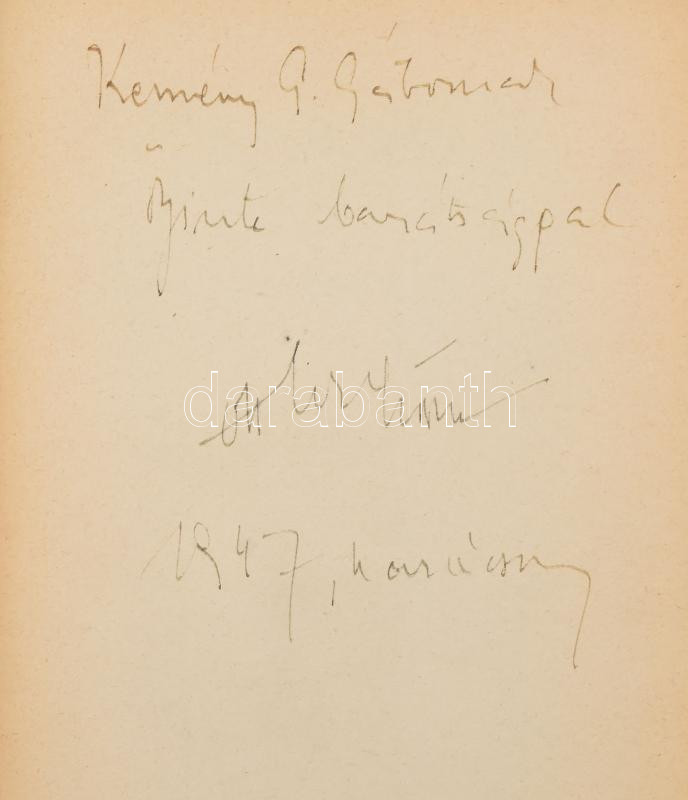 Kemény G. Gábornak
őszinte barátsággal
darabanth
1947, karácsony